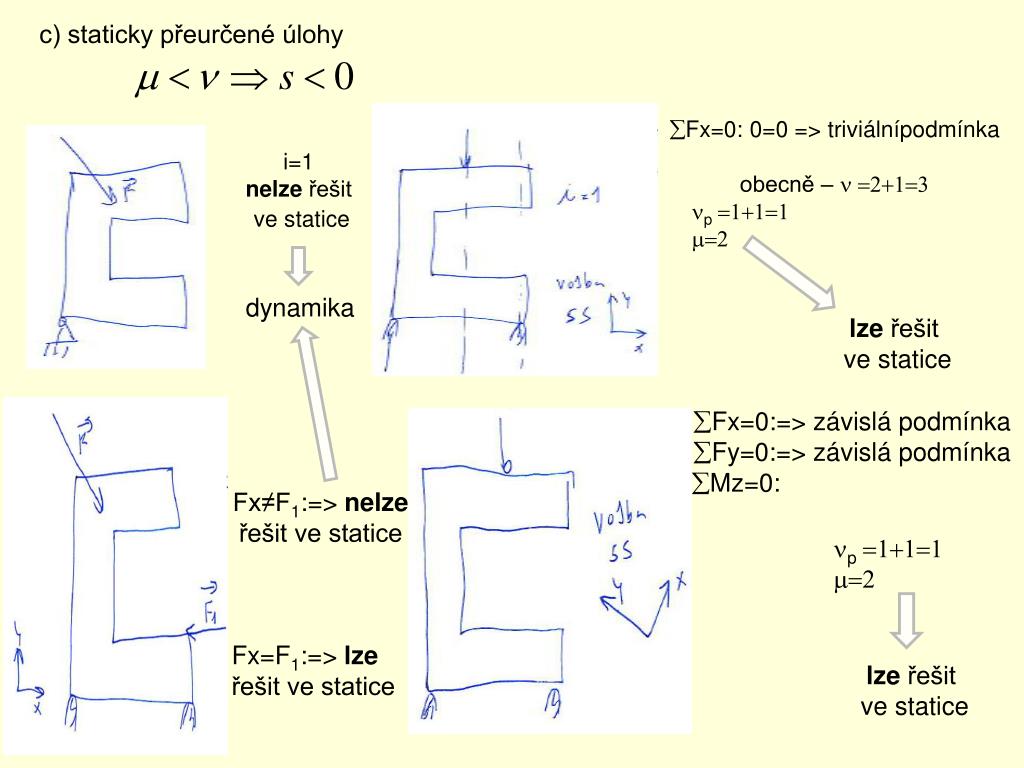 c) staticky přeurčené úlohy
μ < ν ⇒ s < 0
F
i=1
nelze řešit
ve statice
dynamika
i=1
volba
SS
y
x
∑Fx=0: 0=0 => triviálnípodmínka
obecně – ν =2+1=3
νp =1+1=1
μ=2
lze řešit
ve statice
F
F1
y
x
Fx≠F1:=> nelze
řešit ve statice
Fx=F1:=> lze
řešit ve statice
volba
SS
y
x
∑Fx=0:=> závislá podmínka
∑Fy=0:=> závislá podmínka
∑Mz=0:
νp =1+1=1
μ=2
lze řešit
ve statice